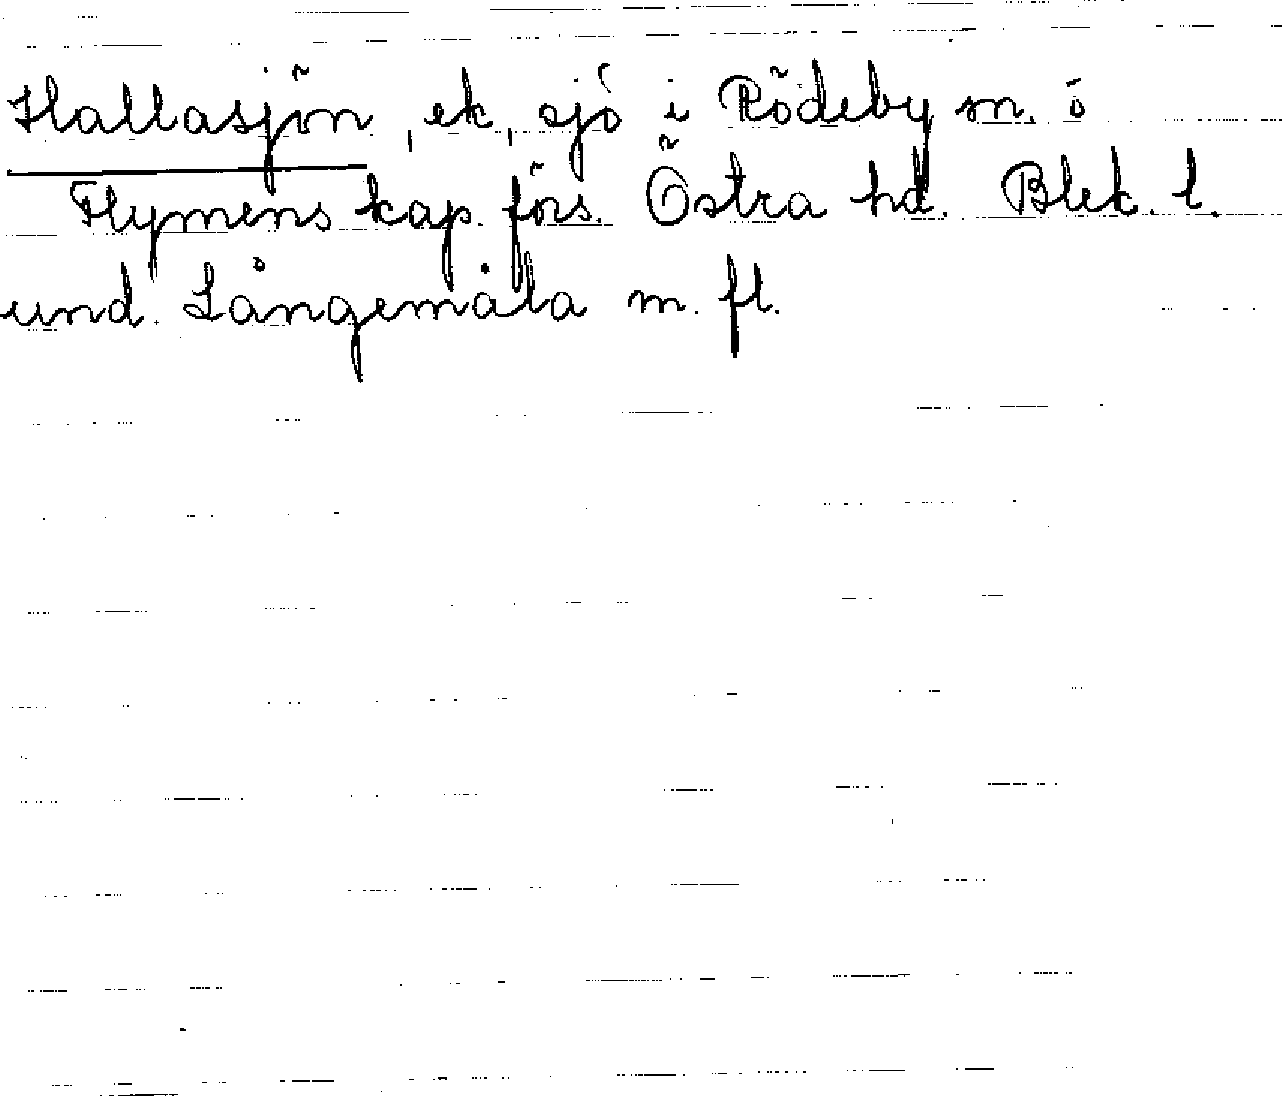 Hallasjön, ek, sjö i Rödeby sn. ö
Flymens kap. förs. Östra hd. Blek. l.
und. Långemåla m. fl.